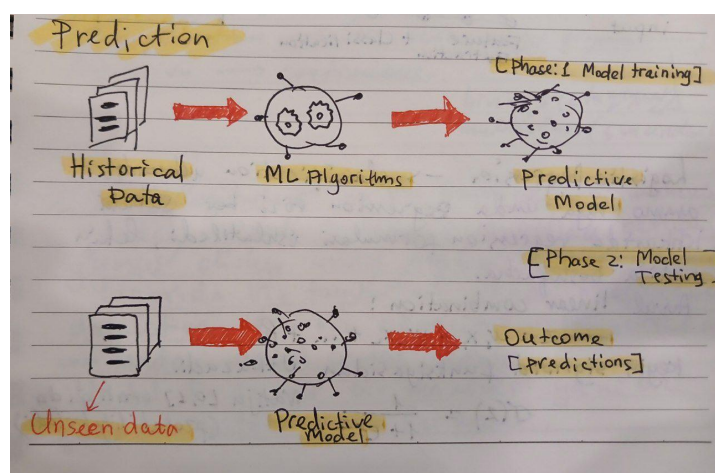 Prediction
[Phase:1 Model training]
Historical
Data
ML Algorithms
Predictive
Model
[Phase 2: Model
Testing
Outcome
[predictions]
Unseen data
Predictive
Model